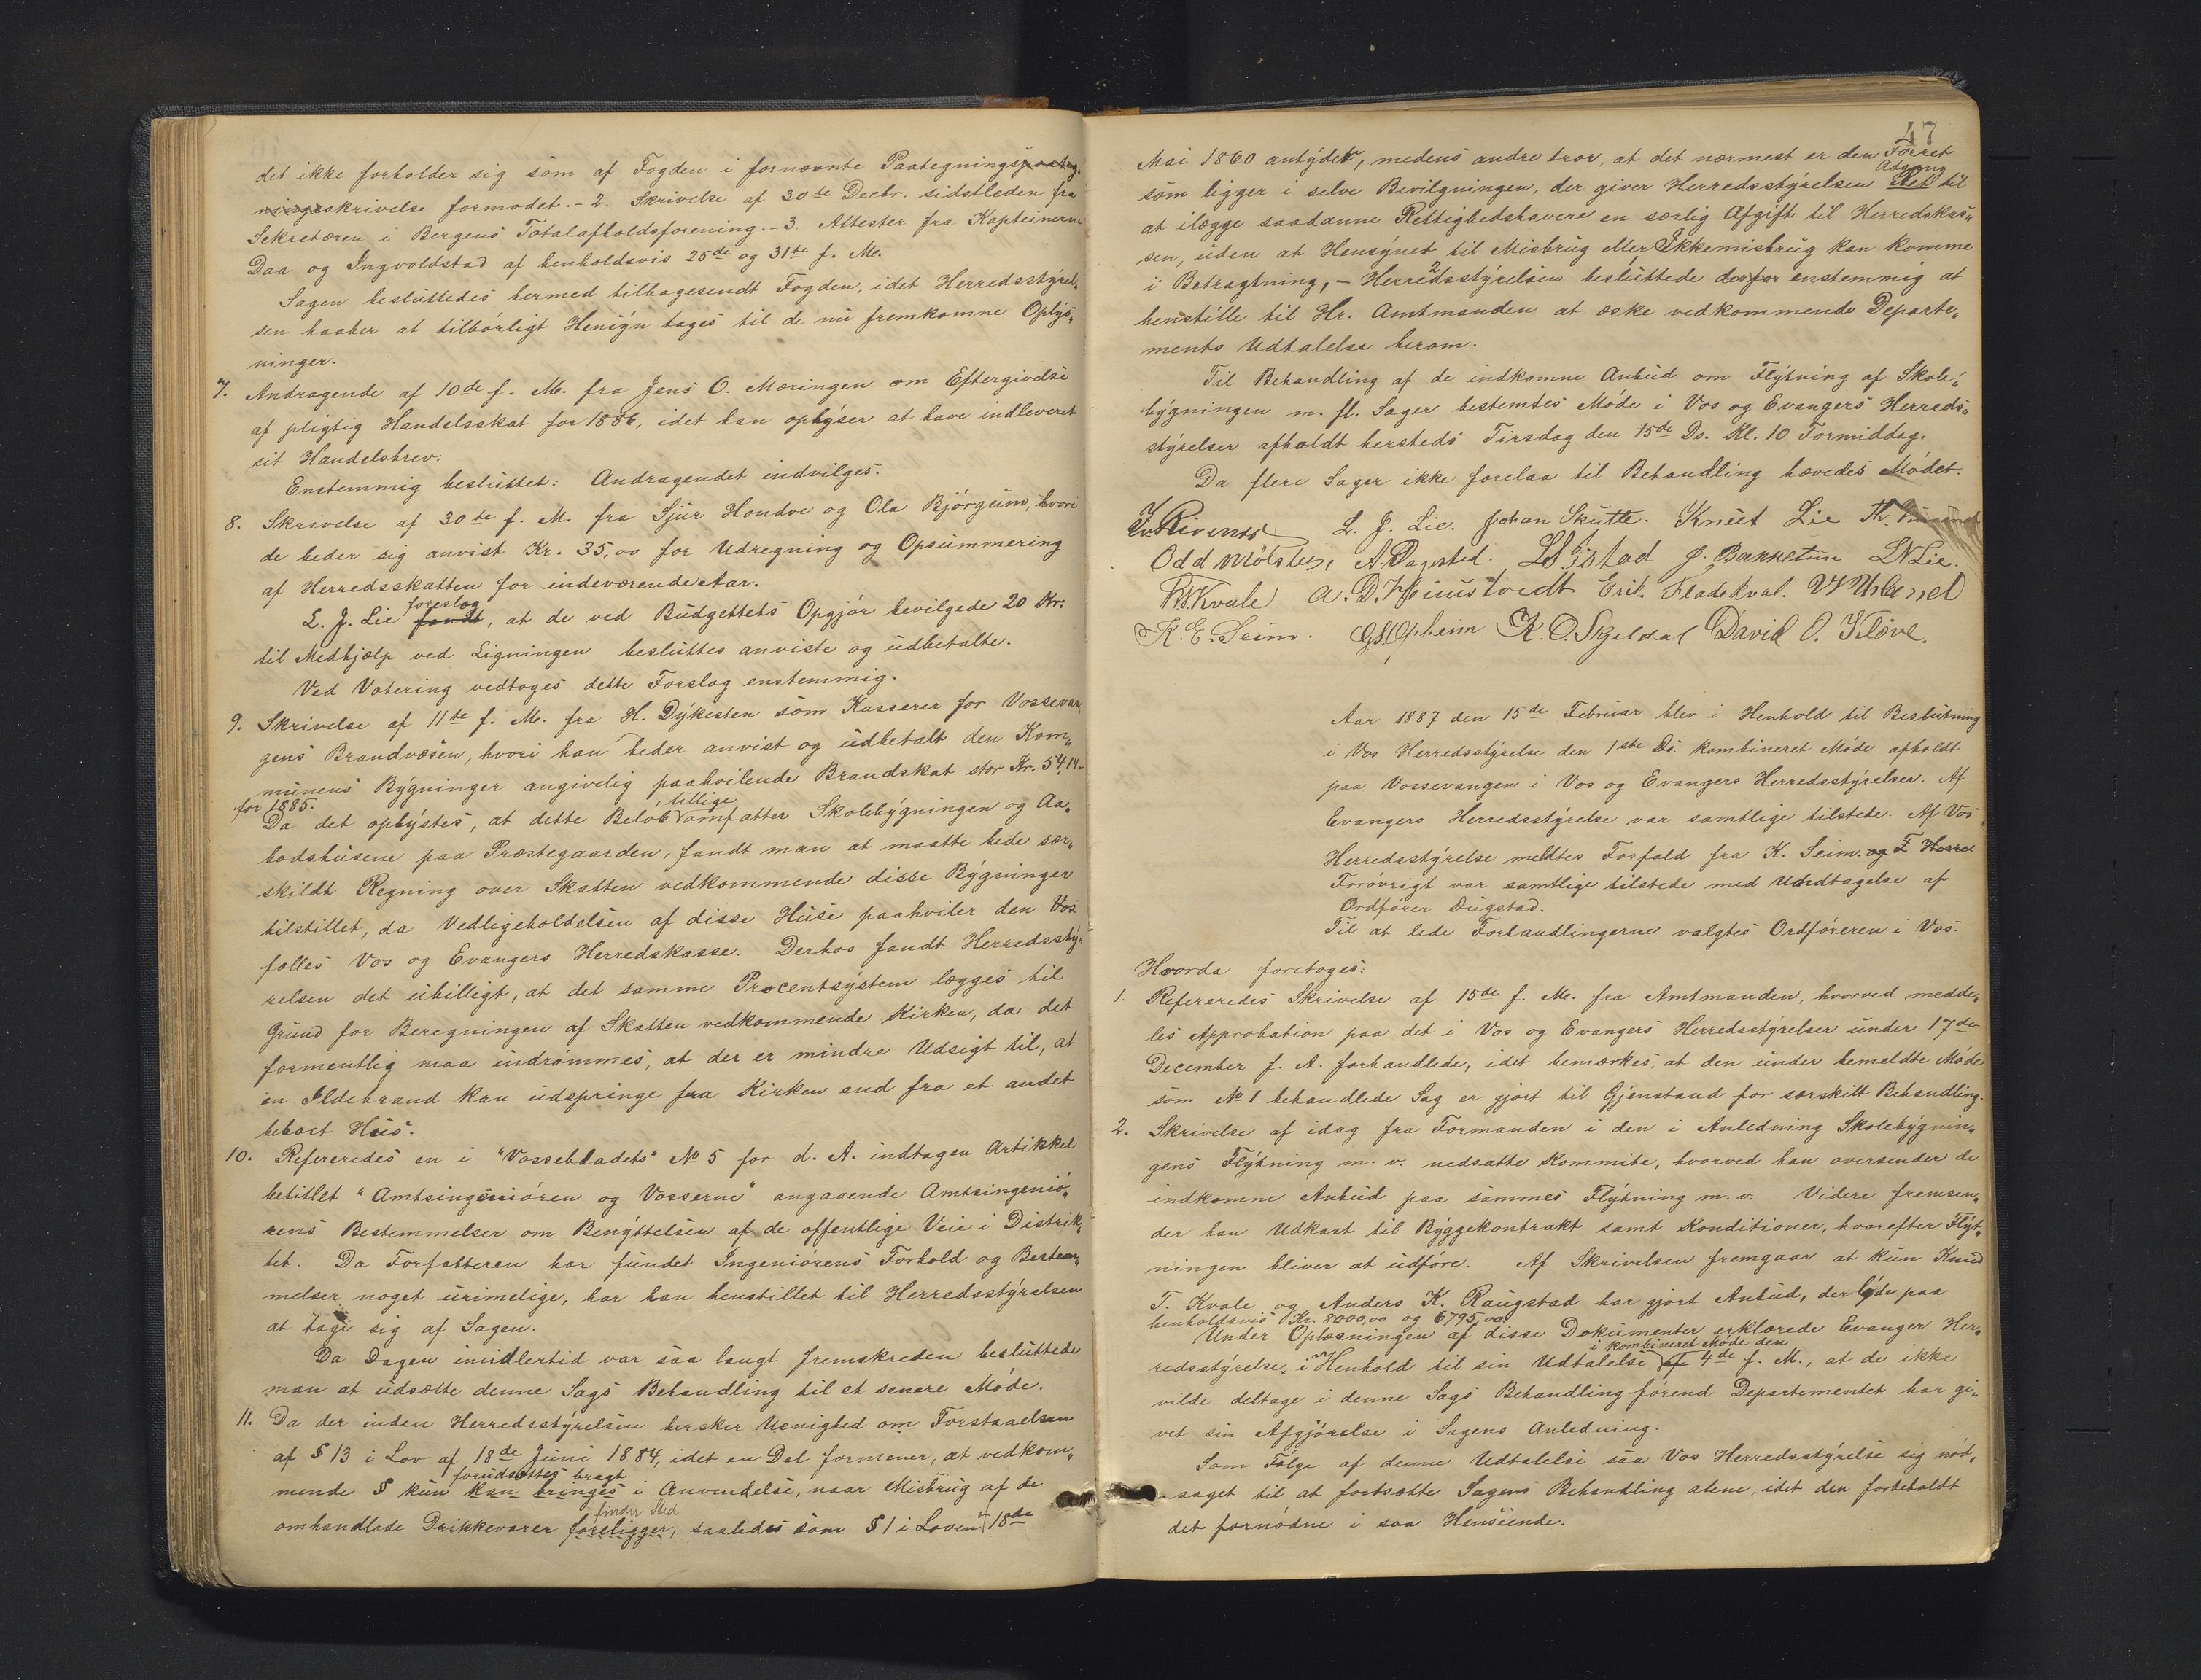 det ikke forholder sig som af Fogden i fornævnte Paategningspaateg-
ningsskrivelse formodet. - 2. Skrivelse af 30te Decbr. sidstleden fra
Sekretæren i Bergens Totalafholdsforening. - 3. Attester fra Kapteinerne
Daa og Ingvoldstad af henholdsvis 25de og 31te f. M.
Sagen besluttedes hermed tilbagesendt Fogden, idet Herredsstyrel„
sen haaber at tilbørligt Hensyn tages til de nu fremkomne Oplys„
ninger.
7. Andragende af 10de f. M. fra Jens O. Mæringen om Eftergivelse
af pligtig Handelsskat for 1886, idet han oplyser at have indleveret
sit Handelsbrev.
Enstemmig besluttet: Andragendet indvilges.
8. Skrivelse af 30te f. M. fra Sjur Hondve og Ola Bjørgum, hvori
de beder sig anvist Kr. 35,00 for Udregning og Opsummering
af Herredsskatten for indeværende Aar.
L. J. Lie foreslog fandt, at de ved Budgettets Opgjør bevilgede 20 Kr.
til Medhjælp ved Ligningen besluttes anviste og udbetalte.
Ved Votering vedtoges dette Forslag enstemmig.
9. Skrivelse af 11te f. M. fra H. Dykesten som Kasserer for Vossevan„
gens Brandvæsen, hvori han beder anvist og udbetalt den Kom„
munens Bygninger angivelig paahvilende Brandskat stor Kr. 54,14
for 1885.
Da det oplystes, at dette Beløb tillige omfatter Skolebygningen og Aa„
bodshusene paa Præstegaarden, fandt man at maatte bede sær„
skildt Regning over Skatten vedkommende disse Bygninger
tilstillet, da Vedligeholdelsen af disse Huse paahviler den Vos
fælles Vos og Evangers Herredskasse. Derhos fandt Herredssty„
relsen det ubilligt, at det samme Procentsystem lægges til
Grund for Beregningen af Skatten vedkommende Kirken, da det
formentlig maa indrømmes, at der er mindre Udsigt til, at
en Ildebrand kan udspringe fra Kirken end fra et andet
beboet Hus.
10. Refereredes en i "Vossebladets" No 5 for d. A. indtagen Artikkel
betitlet "Amtsingeniøren og Vosserne" angaaende Amtsingeniø„
rens Bestemmelser om Benyttelsen af de offentlige Veie i Distrik„
tet. Da Forfatteren har fundet Ingeniørens Forhold og Bestem„
melser noget urimelige, har han henstillet til Herredsstyrelsen
at tage sig af Sagen.
Da Dagen imidlertid var saa langt fremskreden besluttede
man at udsætte denne Sags Behandling til et senere Møde.
11. Da der inden Herredsstyrelsen hersker Uenighed om Forstaaelsen
af § 13 i Lov af 18de Juni 1884, idet en Del formener, at vedkom„
forudsættes bragt
mende § kun kan bringes i Anvendelse, naar Misbrug af de
finder Sted
omhandlede Drikkevarer foreligger, saaledes som § 1 i Loven 18de
47
Mai 1860 antyder, medens andre tror, at det nærmest er den Forret
Adgang
som ligger i selve Bevilgningen, der giver Herredsstyrelsen Ret til
at ilægge saadanne Rettighedshavere en særlig Afgift til Herredskas„
sen, uden at Hensynet til Misbrug eller Ikkemisbrug kan komme
i Betragtning, - Herredsstyrelsen besluttede derfor enstemmig at
henstille til Hr. Amtmanden at æske vedkommende Departe„
ments Udtalelse herom.
Til Behandling af de indkomne Anbud om Flytning af Skole„
bygningen m. fl. Sager bestemtes Møde i Vos og Evangers Herreds„
styrelser afholdt hersteds Tirsdag den 15de Ds. Kl. 10 Formiddag.
Da flere Sager ikke forelaa til Behandling hævedes Mødet.
L. J. Lie. Johan Skutle. Knut Lie
Odd Mølster, A. Dagestad. J. Bakketun L N Lie.
Kvale A. D. Erik Fladekval.
K. E. Seim. Opheim K. O. Skjeldal David O. Kløve.
Aar 1887 den 15de Februar blev i Henhold til Beslutning
i Vos Herredsstyrelse den 1ste Ds. kombineret Møde afholdt
paa Vossevangen i Vos og Evangers Herredsstyrelser. Af
Evangers Herredsstyrelse var samtlige tilstede. Af Vos
Herredsstyrelse meldtes Forfald fra K. Seim. og
Forøvrigt var samtlige tilstede med Undtagelse af
Ordfører Dugstad.
Til at lede Forhandlingerne valgtes Ordføreren i Vos.
Hvorda foretoges:
1. Refereredes Skrivelse af 15de f. M. fra Amtmanden, hvorved medde„
les Approbation paa det i Vos og Evangers Herredsstyrelser under 17de
December f. A. forhandlede, idet bemærkes, at den under bemeldte Møde
som No 1 behandlede Sag er gjort til Gjenstand for særskilt Behandling.
2. Skrivelse af idag fra Formanden i den i Anledning Skolebygnin„
gens Flytning m. v. nedsatte Kommite, hvorved han oversender de
indkomne Anbud paa sammes Flytning m. v. Videre fremsen„
der han Udkast til Byggekontrakt samt Konditioner, hvorefter Flyt„
ningen bliver at udføre. Af Skrivelsen fremgaar at kun Knud
T. Kvale og Anders K. Raugstad har gjort Anbud, der lyde paa
henholdsvis Kr. 8000,00 og 6795,00.
Under Oplæsningen af disse Dokumenter erklærede Evanger Her„
i kombineret Møde den
redsstyrelse, i Henhold til sin Udtalelse af 4de f. M., at de ikke
vilde deltage i denne Sags Behandling førend Departementet har gi„
vet sin Afgjørelse i Sagens Anledning.
Som Følge af denne Udtalelse saa Vos Herredsstyrelse sig nød„
saget til at fortsætte Sagens Behandling alene, idet den forbeholdt
det fornødne i saa Henseende.